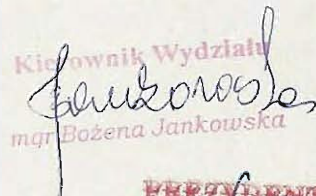 Kierownik Wydziału
Jankowska
mgr Bożena Jankowska